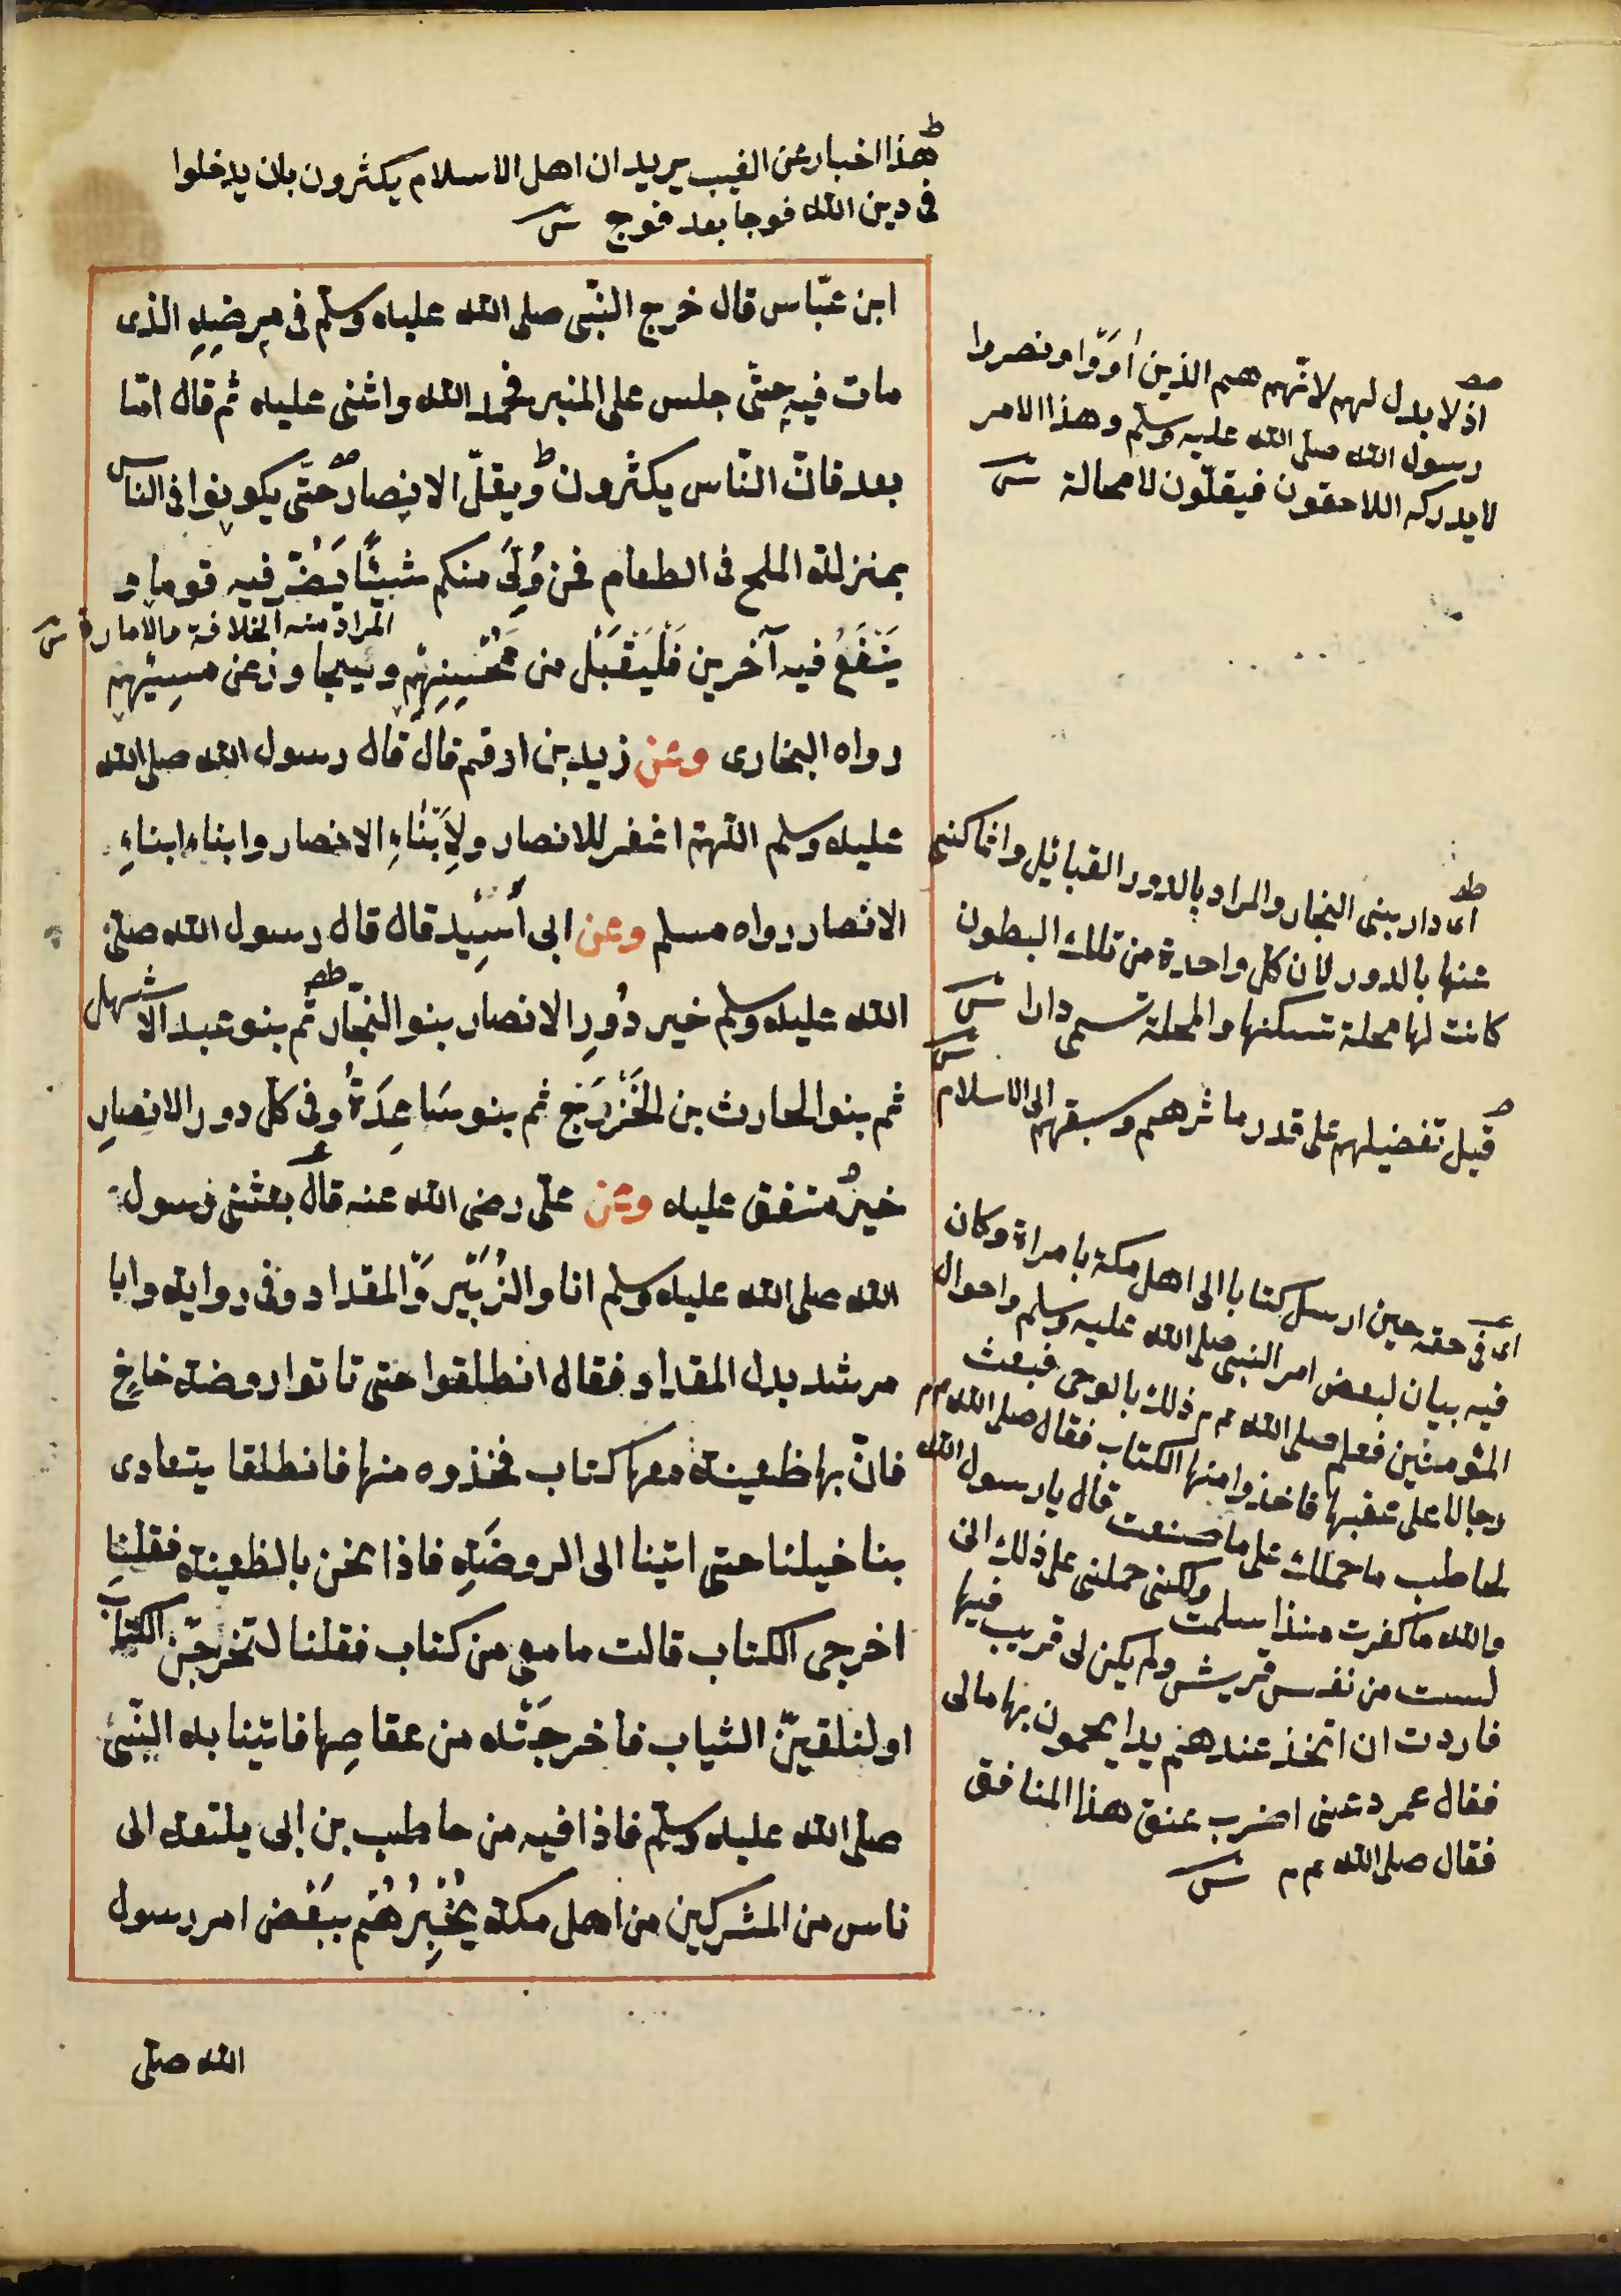 هذا اخبار عن الغيب يريد ان اهل الاسلام يكثرون بان يدخلوا
فى دين الله فوجا بعد فوج
ابن عبّاس قال خرج النبّى صلى الله عليه وسلّم فى مرضِهِ الذى
مات فيهِ حتّى جلس على المنبر فحمد الله واثنى عليه ثم قال امّا
بعد فانّ النّاس يكثرون ويقلّ الانصار حتّى يكونوا فى الناس
بمنزلة الملح فى الطعام فمن وُلِّىَ منكم شيئًا يَضُرّ فيه قوما و
المراد منه الخلافة والامارة
يَنْفَعُ فيه آخرين فَلْيَقْبَلْ من مُحْسِنِهِمْ وليجاوز عن مسِيئهم
رواه البخارى وعن زيد بن ارقم قال قال رسول الله صلى الله
عليه وسلم اللهمّ اغفر للانصار ولِاَبْنَاءِ الانصار وابناء ابناءِ
الانصار رواه مسلم وعن ابى اُسَيْد قال قال رسول الله صلّى
الله عليه وسلم خير دُورِ الانصار بنو النجّار ثم بنو عبد الاشهل
ثم بنو الحارث بن الخَزْرَج ثم بنو سَاعِدَةَ وفى كلّ دور الانصارِ
خيرٌ متفق عليه وعن علىّ رضى الله عنه قال بعثنى رسول
الله صلى الله عليه وسلم انا والزُّبَيْر والمقداد وفى رواية وابا
مرثد بدل المقداد فقال انطلقوا حتى تاتوا روضة خاخ
فانّ بها ظعينة معها كتاب فخذوه منها فانطلقا يتعادى
بنا خيلنا حتى اتينا الى الروضَةِ فاذا نحن بالظعينة فقلنا
اخرجى الكتاب قالت ما معى من كتاب فقلنا لتخرجنّ الكتاب
او لنلقينّ الثياب فاخرجَتْه من عقاصِها فاتينا به النبّى
صلّى الله عليه وسلّم فاذا فيه من حاطب بن ابى بلتعة الى
ناس من المشركين من اهل مكة يُخْبِرُهُمْ ببَعْض امر رسول
الله صلى
اذ لا بدل لهم لانّهم هم الذين اٰوَوْا ونصروا
رسول الله صلّى الله عليه وسلّم وهذا الامر
لا يدركه اللاحقون فيقلّون لا محالة
اى دار بنى النجار والمراد بالدور القبائل وانما كنى
عنها بالدور لان كل واحدة من تلك البطون
كانت لها محلة تسكنها والمحلة تسمى دارا
قيل تفضيلهم على قدر مآثرهم وسبقهم الى الاسلام
اى فى حقه حين ارسل كتابا الى اهل مكة بامراة وكان
فيه بيان لبعض امر النبى صلى الله عليه وسلم واحوال
المؤمنين فعلم صلى الله عم ذلك بالوحى فبعث
رجالا على عقبها فاخذوا منها الكتاب فقال صلى الله عم
لحاطب ما حملك على ما صنعت قال يا رسول الله
والله ما كفرت منذ اسلمت ولكنى حملنى على ذلك انى
لست من نفس قريش ولم يكن لى قريب فيها
فاردت ان اتخذ عندهم يدا يحمون بها مالى
فقال عمر دعنى اضرب عنق هذا المنافق
فقال صلى الله عم